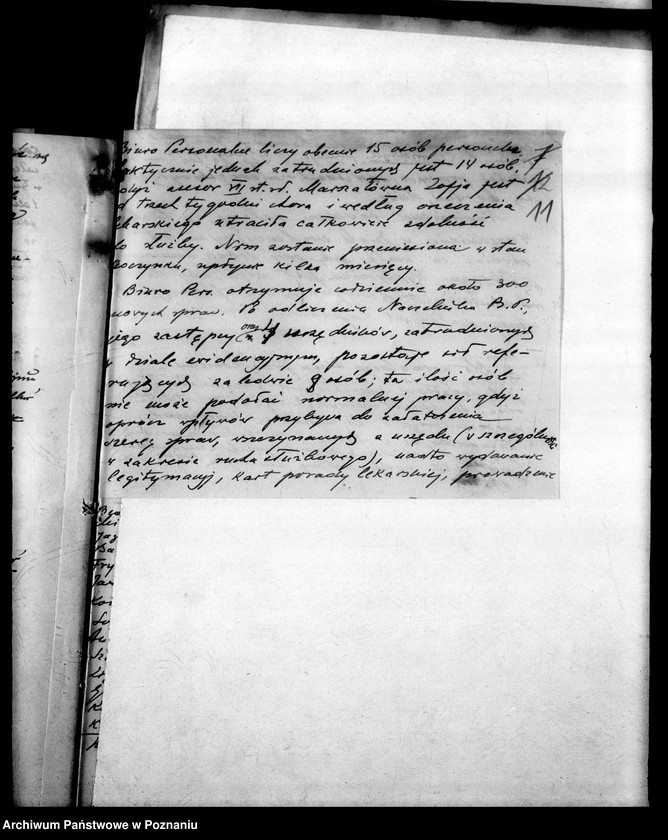 Biuro Personalne liczy obecnie 15 osób personelu,
faktycznie jednak zatrudnionych jest 14 osób,
gdyż asesor VII st. sł. Marszałówna Zofja jest
od trzech tygodni chora i według orzeczenia
lekarskiego straciła całkowicie zdolność
do służby. Nim zostanie przeniesiona w stan
spoczynku, upłynie kilka miesięcy.
Biuro Pers. otrzymuje codziennie około 300
nowych spraw. Po odliczeniu Naczelnika B.P.,
jego zastępcy oraz urzędników, zatrudnionych
w dziale ewidencyjnym, pozostaje sił refe-
rujących zaledwie 8 osób; ta ilość osób
nie może podołać normalnej pracy, gdyż
oprócz wpływów przybywa do załatwienia
szereg spraw, wszczynanych z urzędu (w szczególności
w zakresie ruchu służbowego), nadto wydawanie
legitymacyj, kart porady lekarskiej, prowadzenie
7
12
11
Archiwum Państwowe w Poznaniu